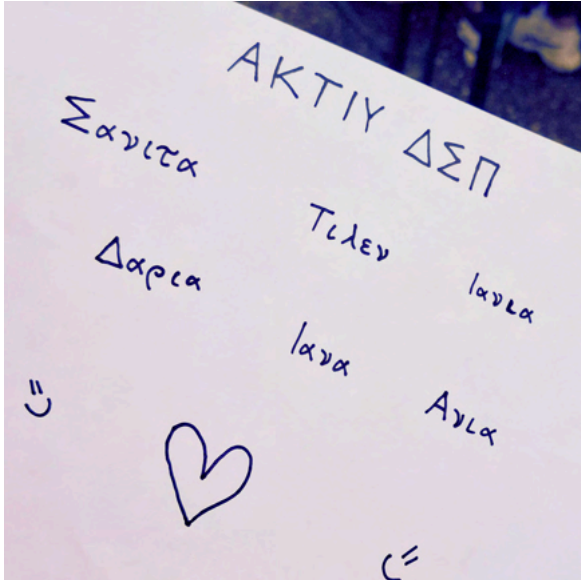 ΑΚΤΙΥ ΔΣΠ
Σανιτα
Τιλεν
Ιανια
Δαρια
Ιανα
Ανια